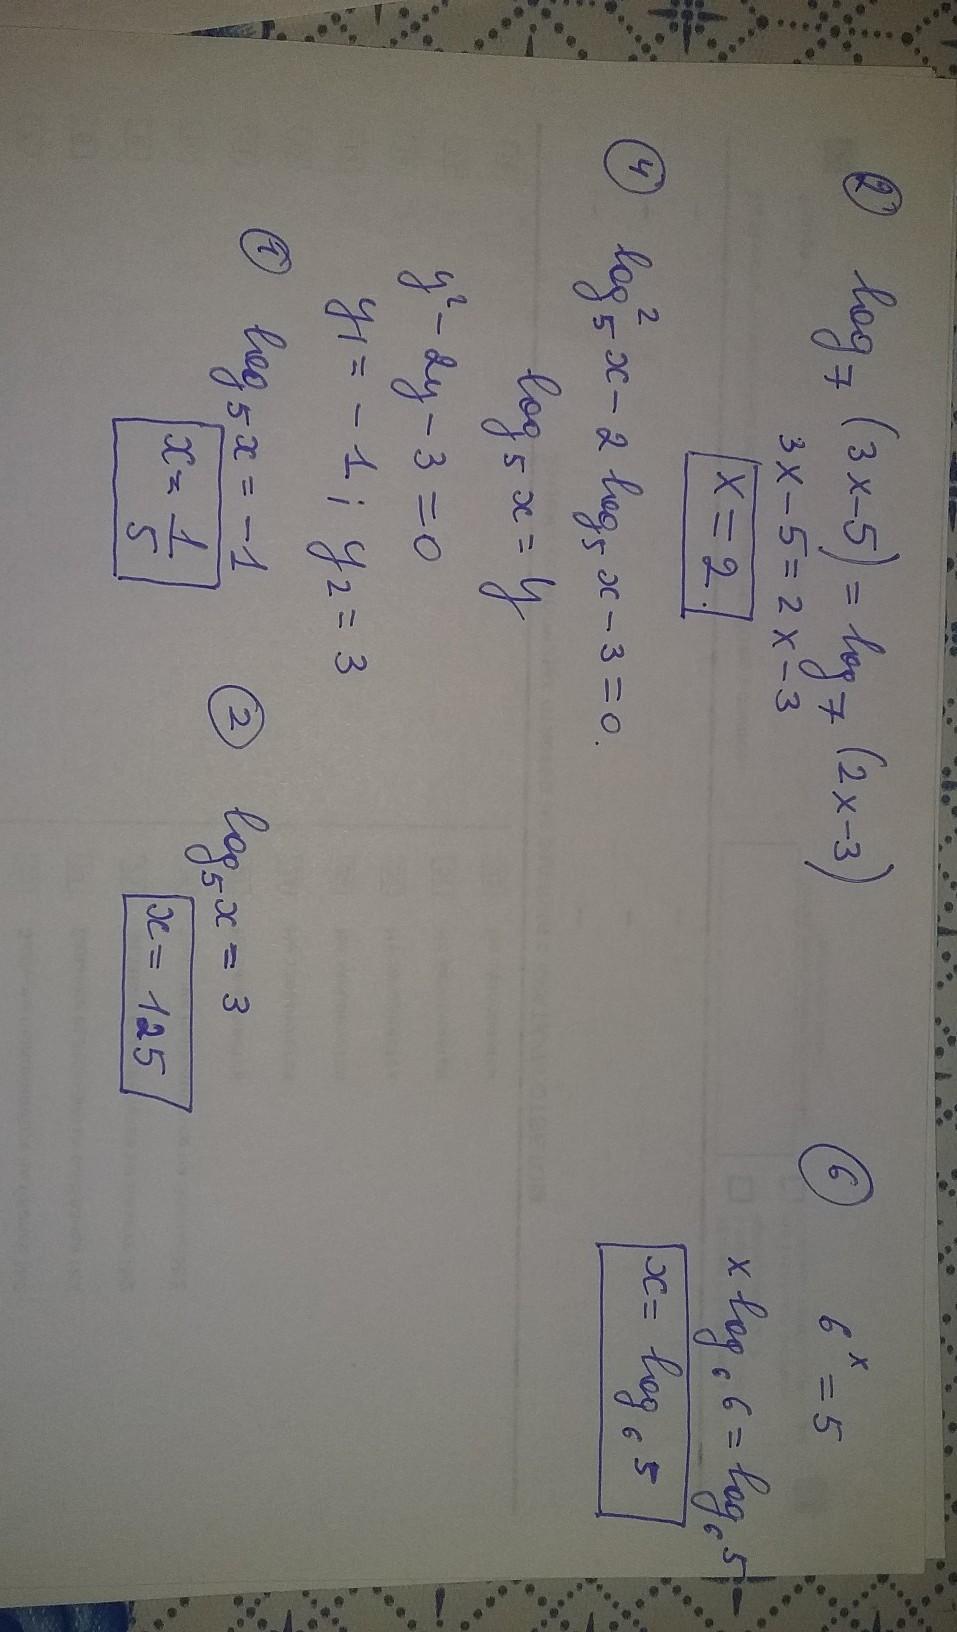 ② log₇ (3x-5) = log₇ (2x-3)
3x-5=2x-3
x=2.
④ log₅²x-2 log₅x-3=0.
log₅x=y
y²-2y-3=0
y₁=-1; y₂=3
① log₅x=-1
x=1/5
② log₅x=3
x=125
⑥ 6ˣ=5
x log₆6=log₆5
x=log₆5